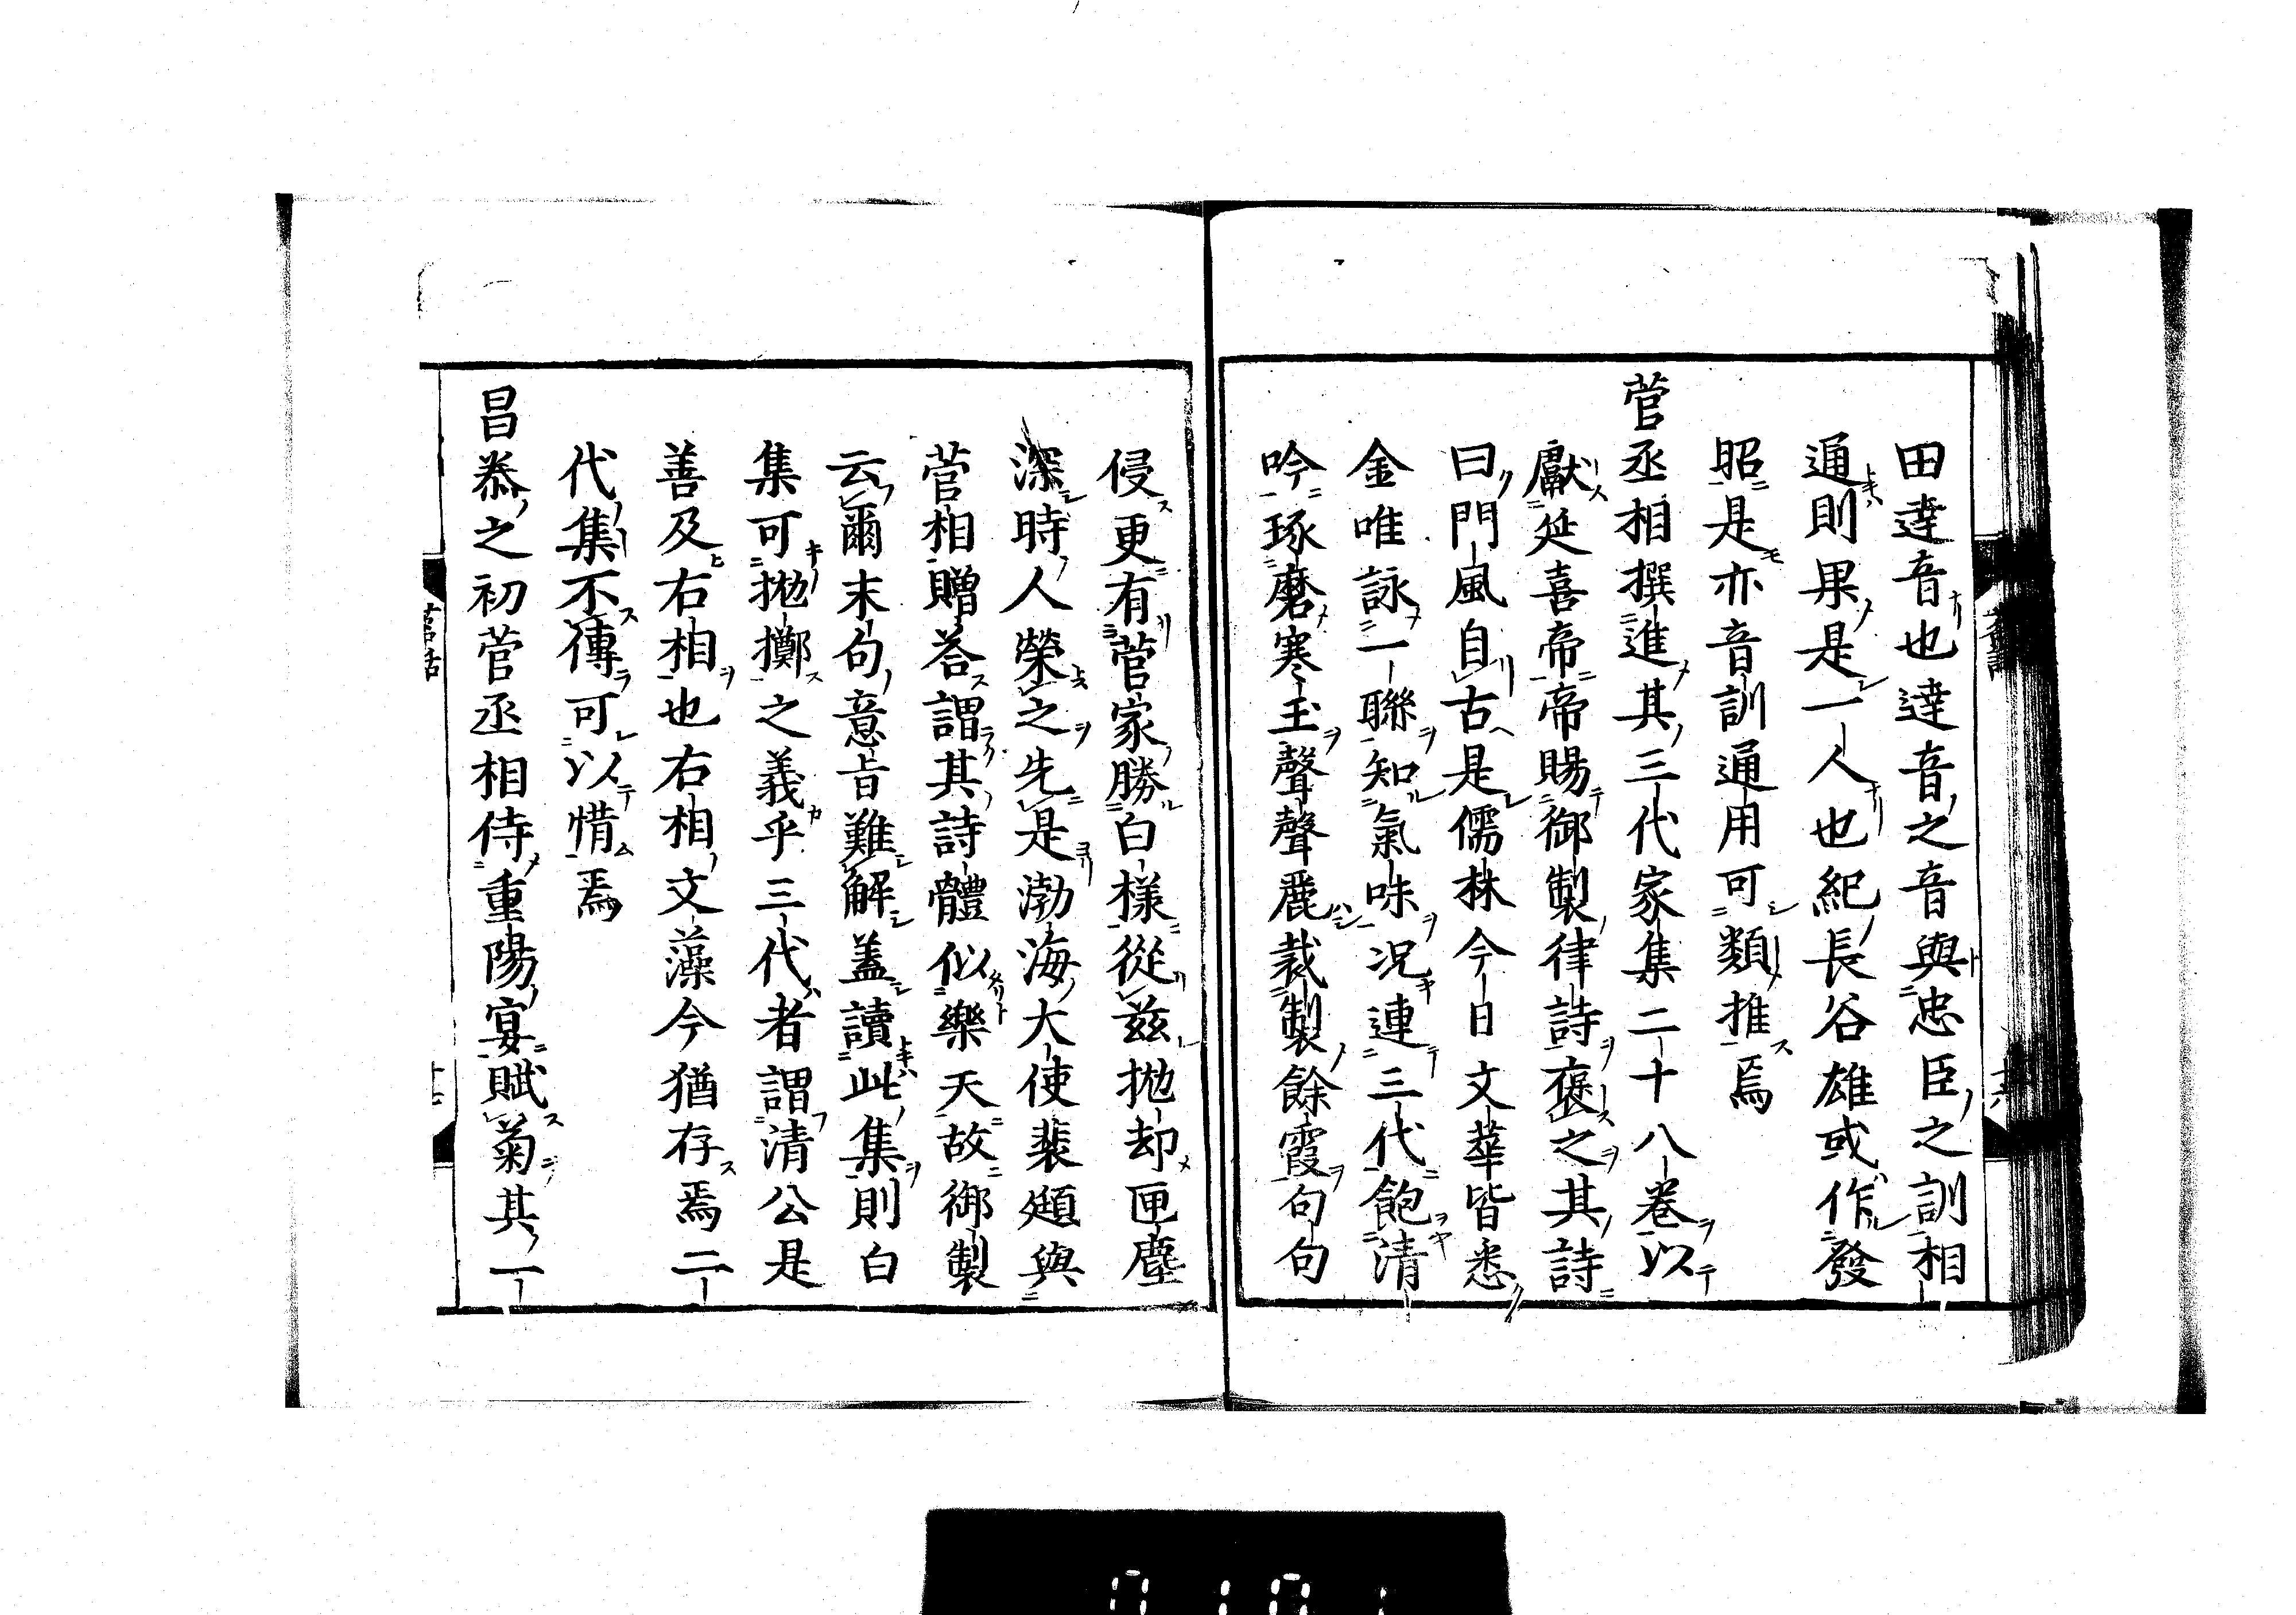 田達音也達音之音與忠臣之訓相
通則果是一人也紀長谷雄或作發
昭是亦音訓通用可類推焉
菅丞相撰進其三代家集二十八卷以
獻延喜帝帝賜御製律詩褒之其詩
曰門風自古是儒林今日文華皆悉
金唯詠一聯知氣味况連三代飽清
吟琢磨寒玉聲聲麗裁製餘霞句句
侵更有菅家勝白樣從茲拋却匣塵
深時人榮之先是渤海大使裴頲與
菅相贈答謂其詩體似樂天故御製
云爾末句意旨難解盖讀此集則白
集可拋擲之義乎三代者謂清公是
善及右相也右相文藻今猶存焉二
代集不傳可以惜焉
昌泰之初菅丞相侍重陽宴賦菊其一